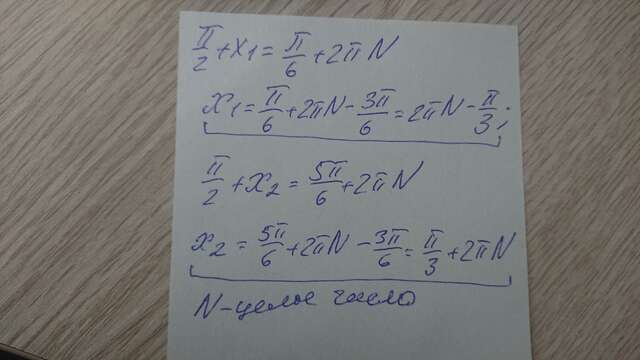 π/2 + x₁ = π/6 + 2πN
x₁ = π/6 + 2πN - 3π/6 = 2πN - π/3;
π/2 + x₂ = 5π/6 + 2πN
x₂ = 5π/6 + 2πN - 3π/6 = π/3 + 2πN
N - целое число